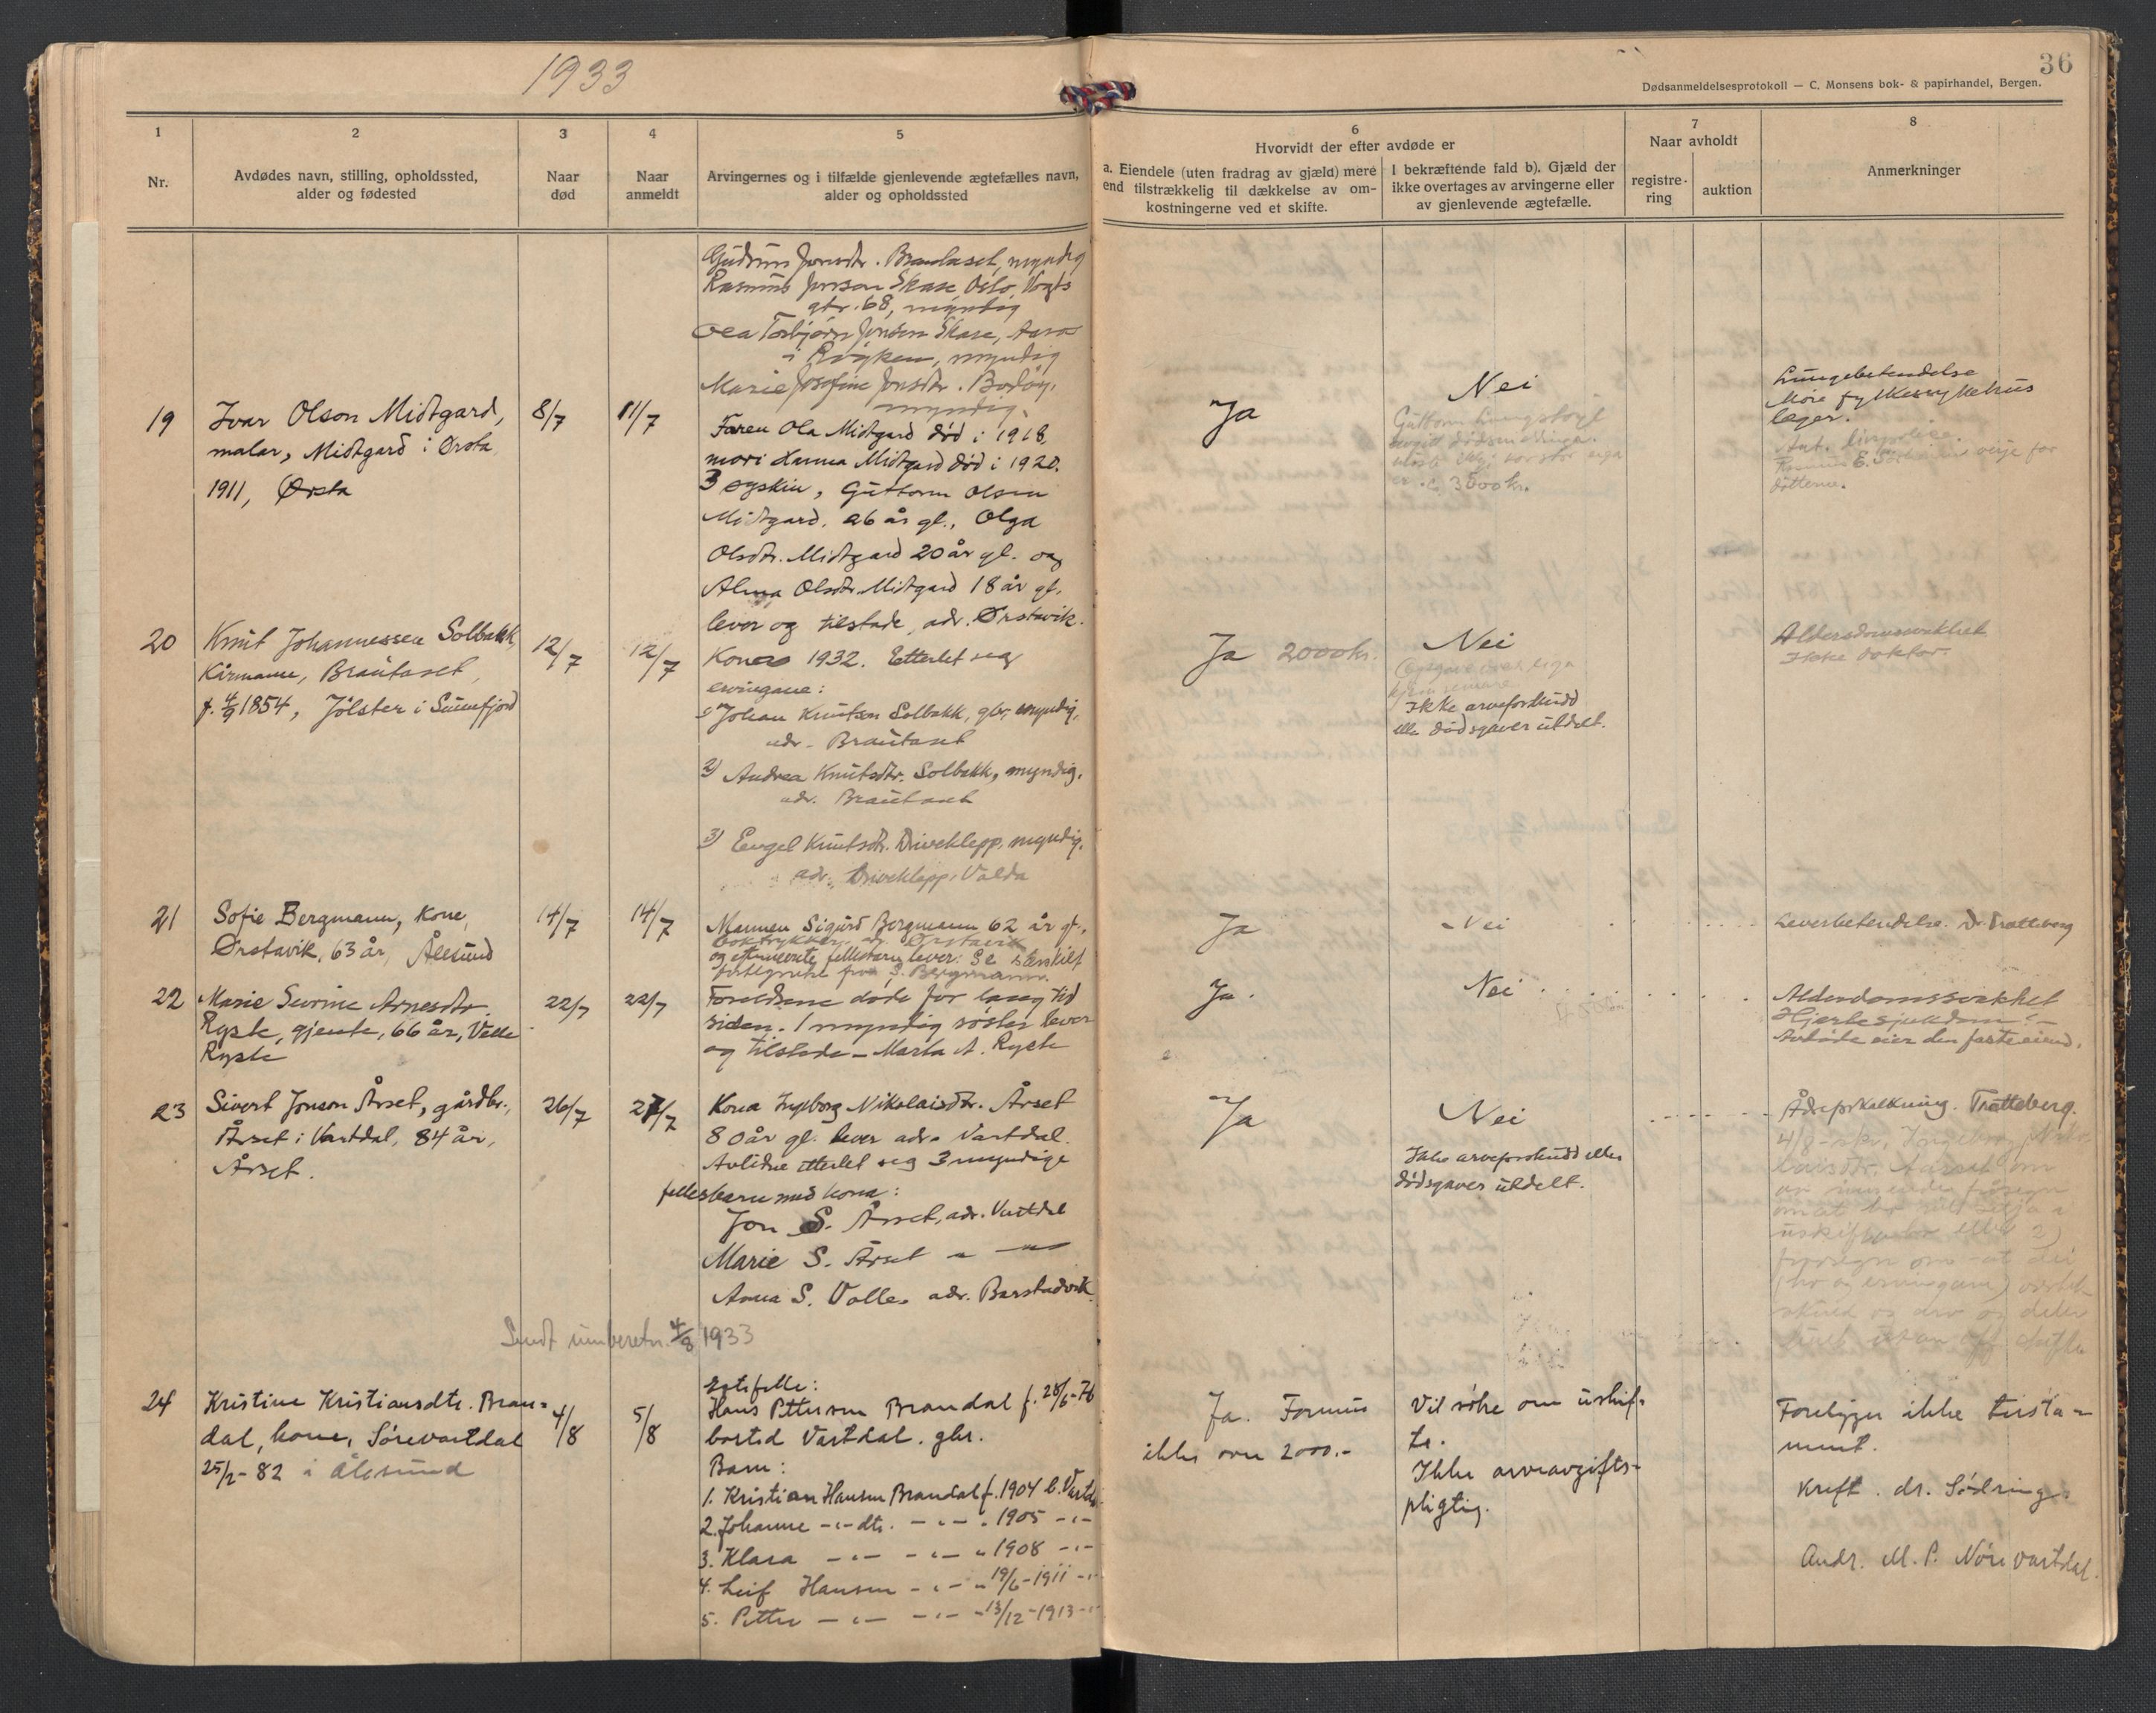 1933
36
Dødsanmeldelsesprotokoll — C. Monsens bok- & papirhandel, Bergen.
1
Nr.
2
Avdødes navn, stilling, opholdssted,
alder og fødested
3
Naar
død
4
Naar
anmeldt
5
Arvingernes og i tilfælde gjenlevende ægtefælles navn,
alder og opholdssted
6
Hvorvidt der efter avdøde er
a. Eiendele (uten fradrag av gjæld) mere
end tilstrækkelig til dækkelse av om-
kostningerne ved et skifte.
I bekræftende fald b). Gjæld der
ikke overtages av arvingerne eller
av gjenlevende ægtefælle.
7
Naar avholdt
registre-
ring
auktion
8
Anmerkninger
Gudrun Jonsdtr. myndig
Rasmus Jonson Skase, Oslo, Vogts
gtr. 68, myndig
Ola Torbjørn Jonson Skase,
i Røyken, myndig
Marie Josefine Jonsdtr.
myndig
19
Ivar Olson Midtgard,
malar, Midtgard i Ørsta
1911, Ørsta
8/7
11/7
Faren Ola Midtgard død i 1918,
mori Hanna Midtgard død i 1920.
3 syskin, Guttorm Olsen
Midtgard, 26 år gl., Olga
Olsdtr. Midtgard 20 år gl. og
Alma Olsdtr. Midtgard 18 år gl.
lever og tilstade, adr. Ørstavik.
Ja
Nei
Guttorm
3500 kr.
Lungebetendelse
Møre fylkessykehus
læger.
verje for
døtterne.
20
Knut Johannessen Solbakk,
Kårmann, Brautaset,
f. 4/9 1854, Jølster i Sunnfjord
12/7
12/7
Kona 1932. Etterlet seg
ervingane:
1) Johan Knutsen Solbakk, gbr, myndig,
adr. Brautaset
2) Andrea Knutsdtr. Solbakk, myndig,
adr. Brautaset
3) Engel Knutsdtr. Driveklepp, myndig,
adr. Driveklepp, Volda
Ja 2000 kr.
Nei
Ikke arveforskudd
elle dødsgaver utdelt.
Aldersdomssvakhet
Ikke doktor.
21
Sofie Bergmann, kone,
Ørstavik, 63 år, Ålesund
14/7
14/7
Mannen Sigurd Bergmann 62 år gl.,
boktrykker, Ørstavik
og fellesbarn lever. Se særskilt
fra S. Bergmann.
Ja
Nei
Leverbetendelse. Dr. Tratteberg
22
Marie Sevrine Arnesdtr.
Ryste, gjente, 66 år, Velle
Ryste
22/7
22/7
Foreldrene døde for lang tid
siden. 1 myndig søster lever
og tilstede – Marta A. Ryste
Ja.
Nei
Alderdomssvakhet
Hjertesjukdom
Avdøde eier den faste eiend.
23
Sivert Jonson Årset, gårdbr.,
Årset i Vartdal, 84 år,
Årset.
26/7
27/7
Kona Ingeborg Nikolaisdtr. Årset
80 år gl. lever adr. Vartdal.
Avlidne etterlet seg 3 myndige
fellesbarn med kona:
Jon S. Årset, adr. Vartdal
Marie S. Årset " — "
Anna S. Volle, adr. Barstadvik
Ja
Nei
Ikke arveforskudd eller
dødsgaver utdelt.
Åreforkalkning. Tratteberg.
4/8 Ingeborg Niko-
laisdtr. Aarset om
Sendt innberetn. 4/8 1933
24
Kristine Kristiansdtr. Bran-
dal, kone, Sørevartdal
25/2-82 i Ålesund
4/8
5/8
Ektefelle:
Hans Pettersen Brandal f. 28/6-76
bosted Vartdal. gbr.
Barn:
1. Kristian Hansen Brandal f. 1904 b. Vartd.
2. Johanne -"- dtr. -"- " 1905 -"-
3. Klara -"- -"- " 1908 -"-
4. Leif Hansen -"- " 19/6-1911 -"-
5. Petter -"- -"- - 13/12-1913 -"-
Ja. Formue
ikke over 2000.-
Vil søke om uskif-
te.
Ikke arveavgifts-
pligtig.
Foreligger ikke testa-
ment.
Kreft. dr. Sødring.
Andr. M. P. Nørevartdal.